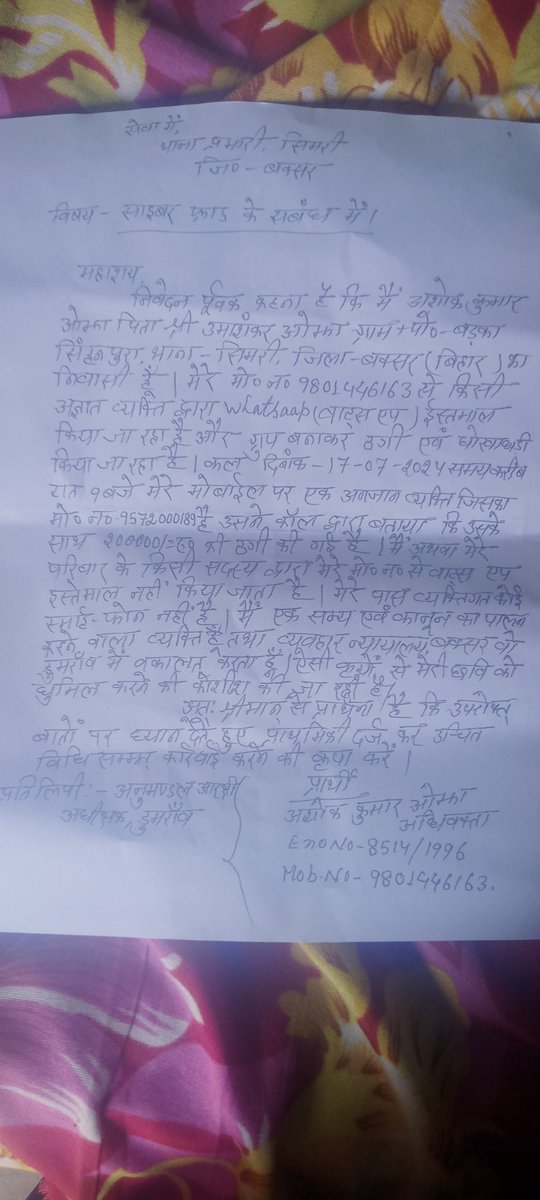 सेवा में,
थाना प्रभारी, सिमरी
जि० - बक्सर
विषय - साइबर फ्राड के सबंध में।
महाशय,
निवेदन पूर्वक कहना है कि मैं अशोक कुमार
ओझा पिता - श्री उमाशंकर ओझा ग्राम + पो० - बड़का
सिंहनपुरा, थाना - सिमरी, जिला - बक्सर (बिहार) का
निवासी हूँ। मेरे मो० न० 9801446163 से किसी
अज्ञात व्यक्ति द्वारा Whatsaap (वाट्स एप) इस्तेमाल
किया जा रहा है और ग्रुप बनाकर ठगी एवं धोखाधड़ी
किया जा रहा है। कल दिनांक - 17-07-2024 समय करीब
रात 9 बजे मेरे मोबाईल पर एक अनजान व्यक्ति जिसका
मो० न० - 9572000189 है उसने कॉल द्वारा बताया कि उसके
साथ 200000/= रु० की ठगी की गई है। मैं अथवा मेरे
परिवार के किसी सदस्य द्वारा मेरे मो० न० से वाट्स एप
इस्तेमाल नहीं किया जाता है। मेरे पास व्यक्तिगत कोई
स्मार्ट-फोन नहीं है। मैं एक सभ्य एवं कानून का पालन
करने वाला व्यक्ति हूँ तथा व्यवहार न्यायालय, बक्सर वो
डुमराँव में वकालत करता हूँ। ऐसी कृत्यों से मेरी छवि को
धुमिल करने की कोशीश की जा रही है।
अतः श्रीमान से प्रार्थना है कि उपरोक्त
बातों पर ध्यान देते हुए प्राथमिकी दर्ज कर उचित
विधि सम्मत कार्रवाई करने की कृपा करें।
प्रार्थी
प्रतिलिपी :- अनुमण्डल आरक्षी
अधीक्षक, डुमराँव
अशोक कुमार ओझा
अधिवक्ता
No - 8514/1996
Mob-No - 9801446163.